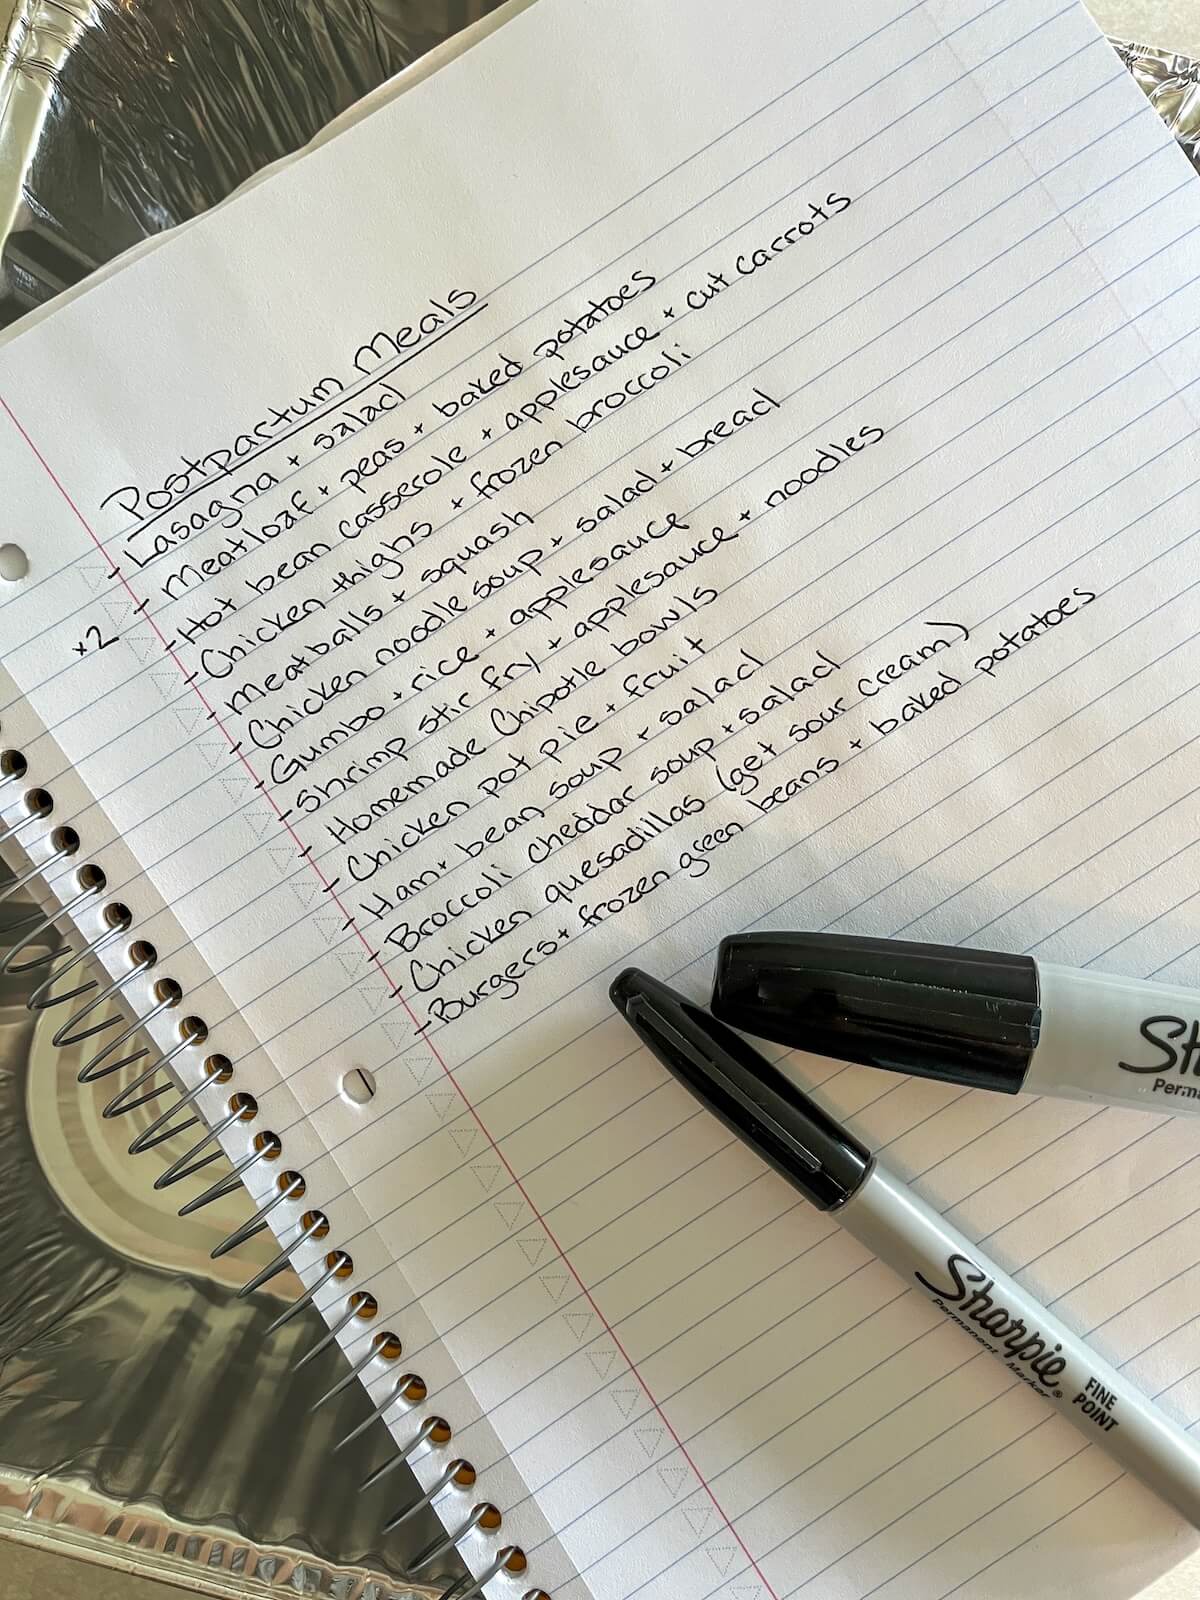 Postpartum Meals
- Lasagna + salad
- Meatloaf + peas + baked potatoes
x2 - Hot bean casserole + applesauce + cut carrots
- Chicken thighs + frozen broccoli
- Meatballs + squash
- Chicken noodle soup + salad + bread
- Gumbo + rice + applesauce
- Shrimp stir fry + applesauce + noodles
- Homemade Chipotle bowls
- Chicken pot pie + fruit
- Ham + bean soup + salad
- Broccoli cheddar soup + salad
- Chicken quesadillas (get sour cream)
- Burgers + frozen green beans + baked potatoes
Sh
Perma
Sharpie
Permanent Marker
FINE
POINT